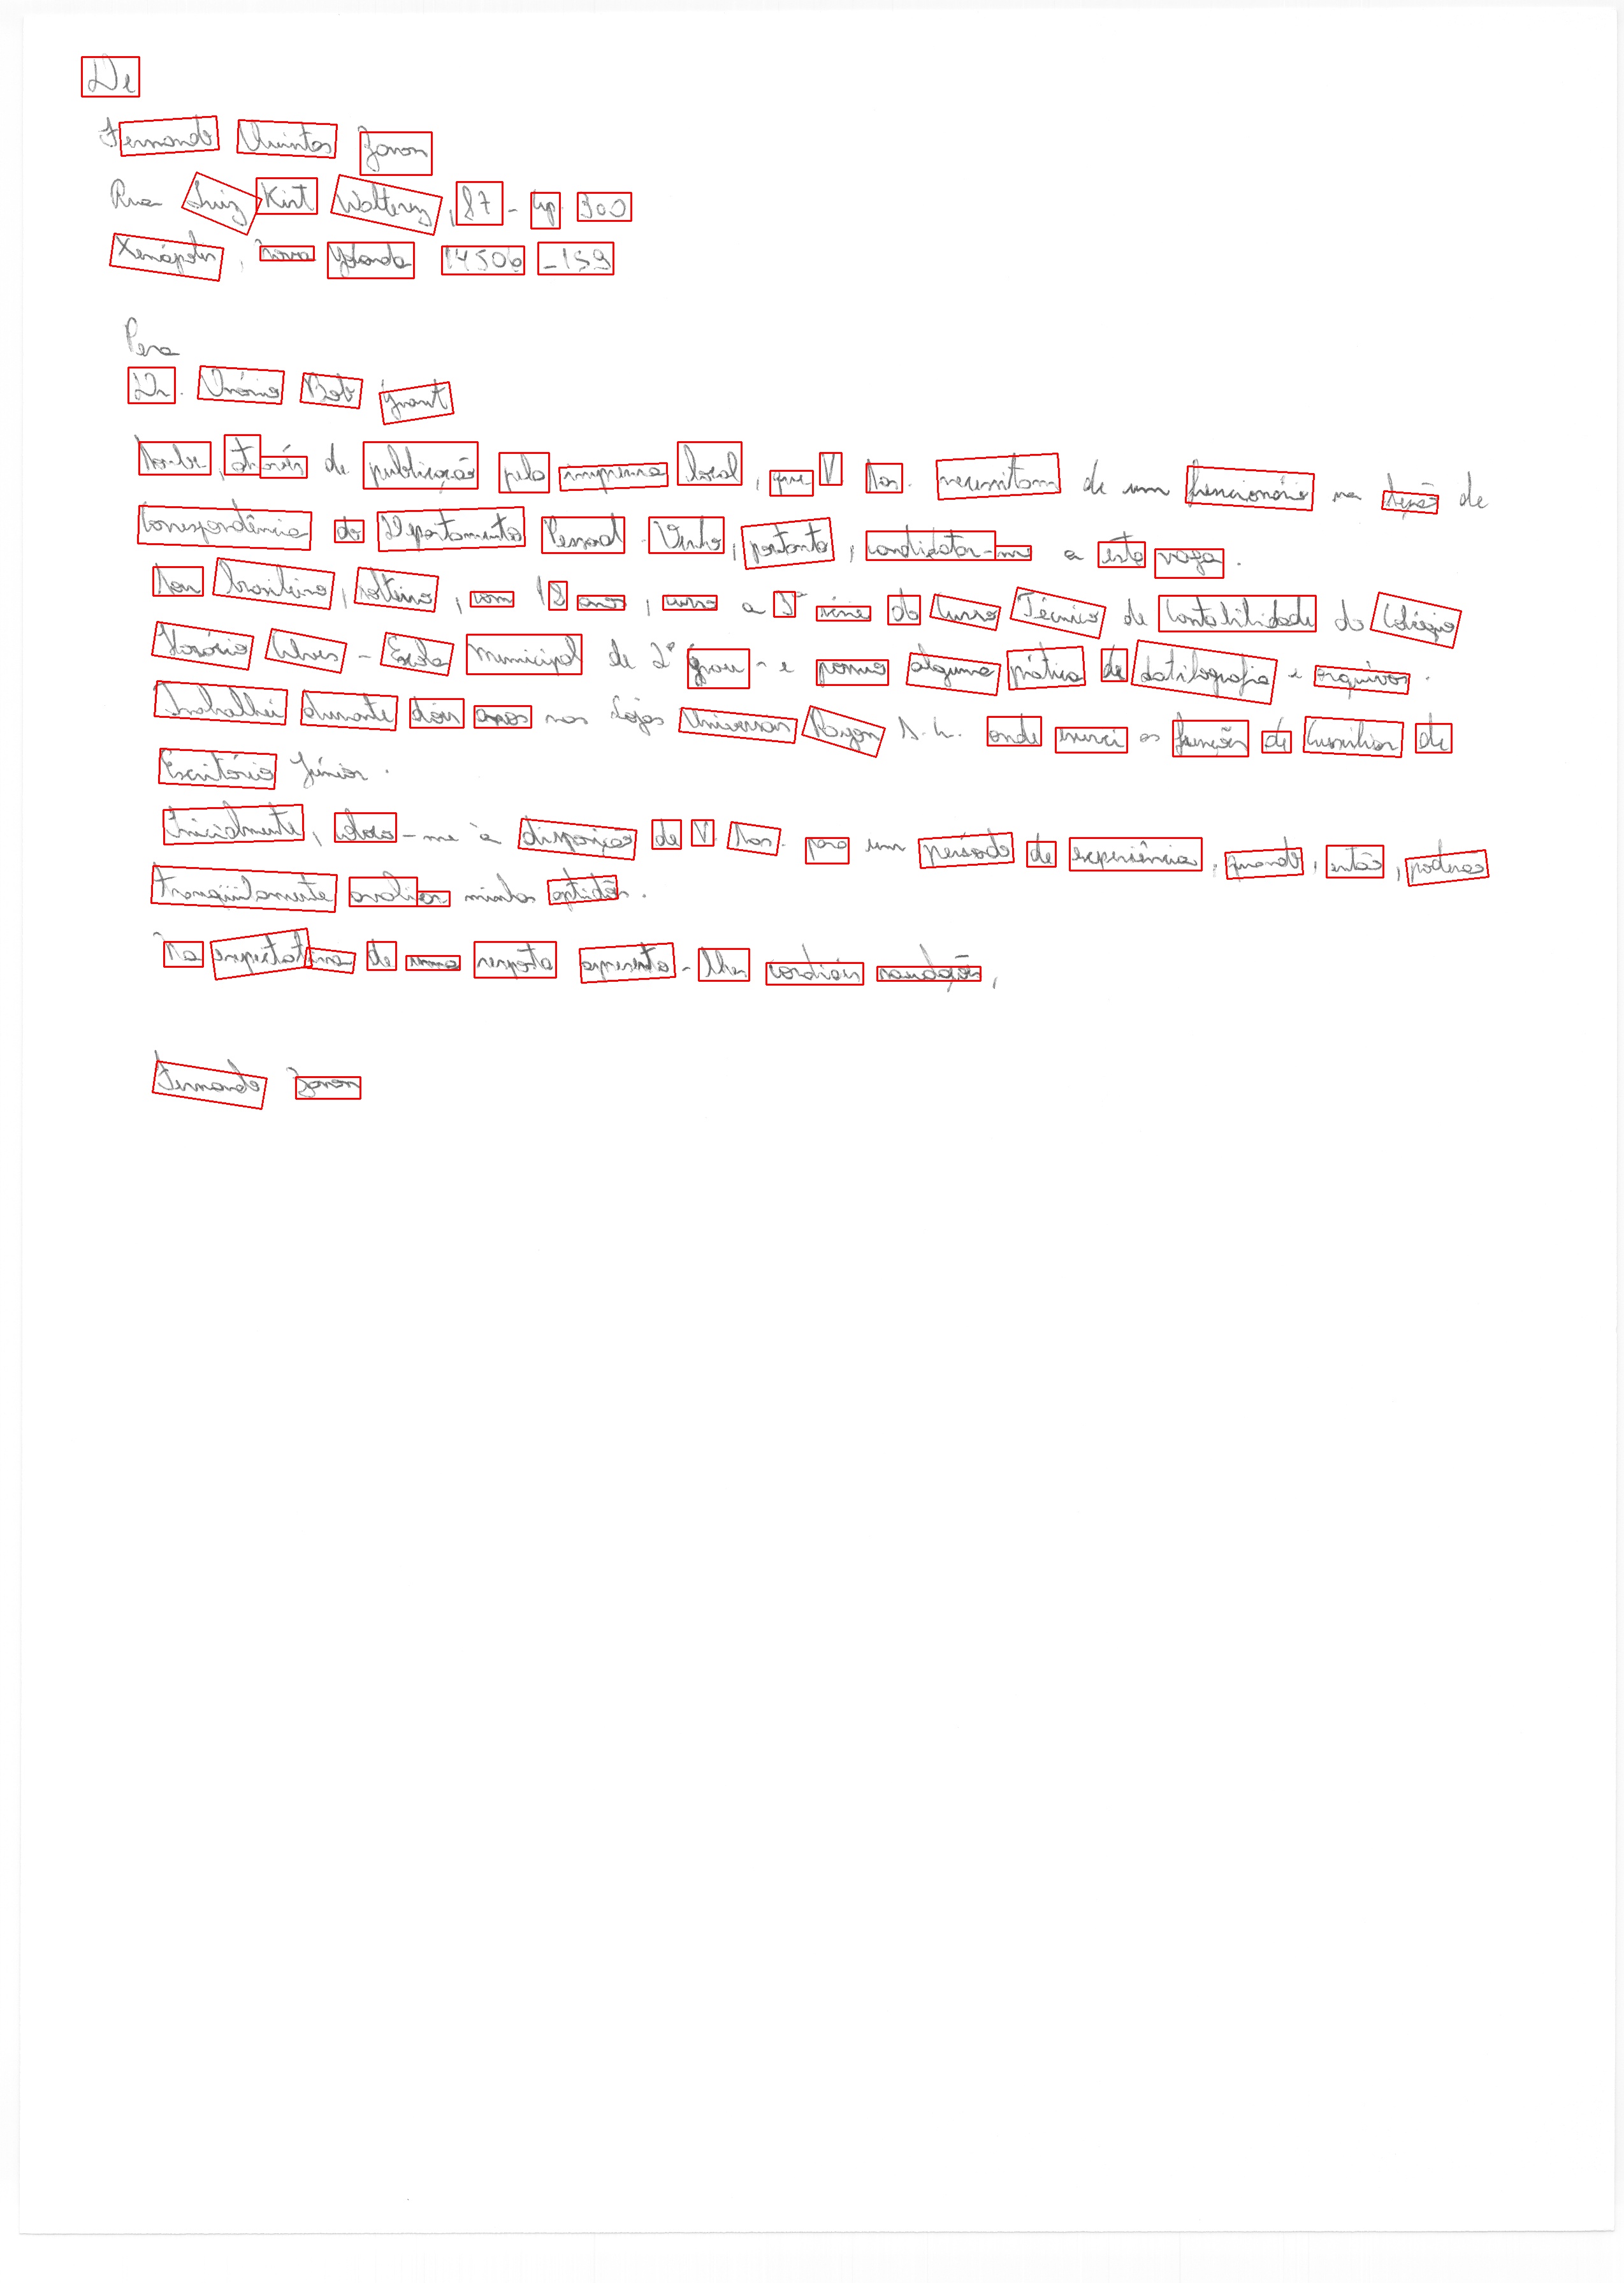 De
Fernando Quintos Zanon
Rua Luiz Kirt Walterez, 87 - ap 300
Xenápolis, Nova Yolanda 14506-159
Para
Dr. Osório Bob Grant
Soube, através de publicação pela imprensa local, que V Sas. necessitam de um funcionário na Seção de
Correspondência do Departamento Pessoal. Venho, portanto, candidatar-me a esta vaga.
Sou brasileiro, solteiro, com 18 anos, curso a 3ª série do Curso Técnico de Contabilidade do Colégio
Horácio Alves - Escola Municipal de 2º grau - e possuo alguma prática de datilografia e arquivos.
Trabalhei durante dois anos nas Lojas Universas S.A. onde exerci as funções de Auxiliar de
Escritório Júnior.
Inicialmente, coloco-me à disposição de V. Sas. para um período de experiência, quando, então, poderão
tranqüilamente avaliar minhas aptidões.
Na expectativa de uma resposta apresento-lhes cordiais saudações,
Fernando Zanon